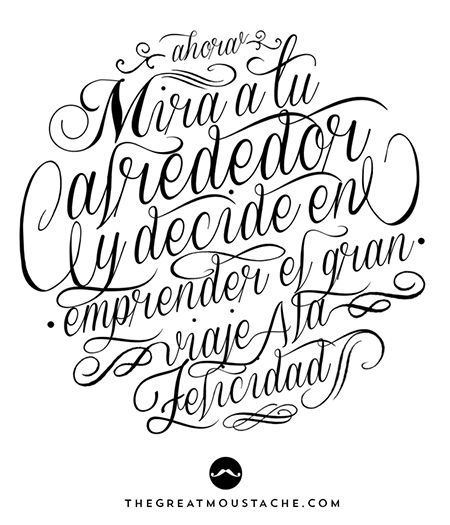 ahora
Mira a tu
alrededor
y decide en
emprender el gran
viaje A la
Felicidad
THEGREATMOUSTACHE.COM